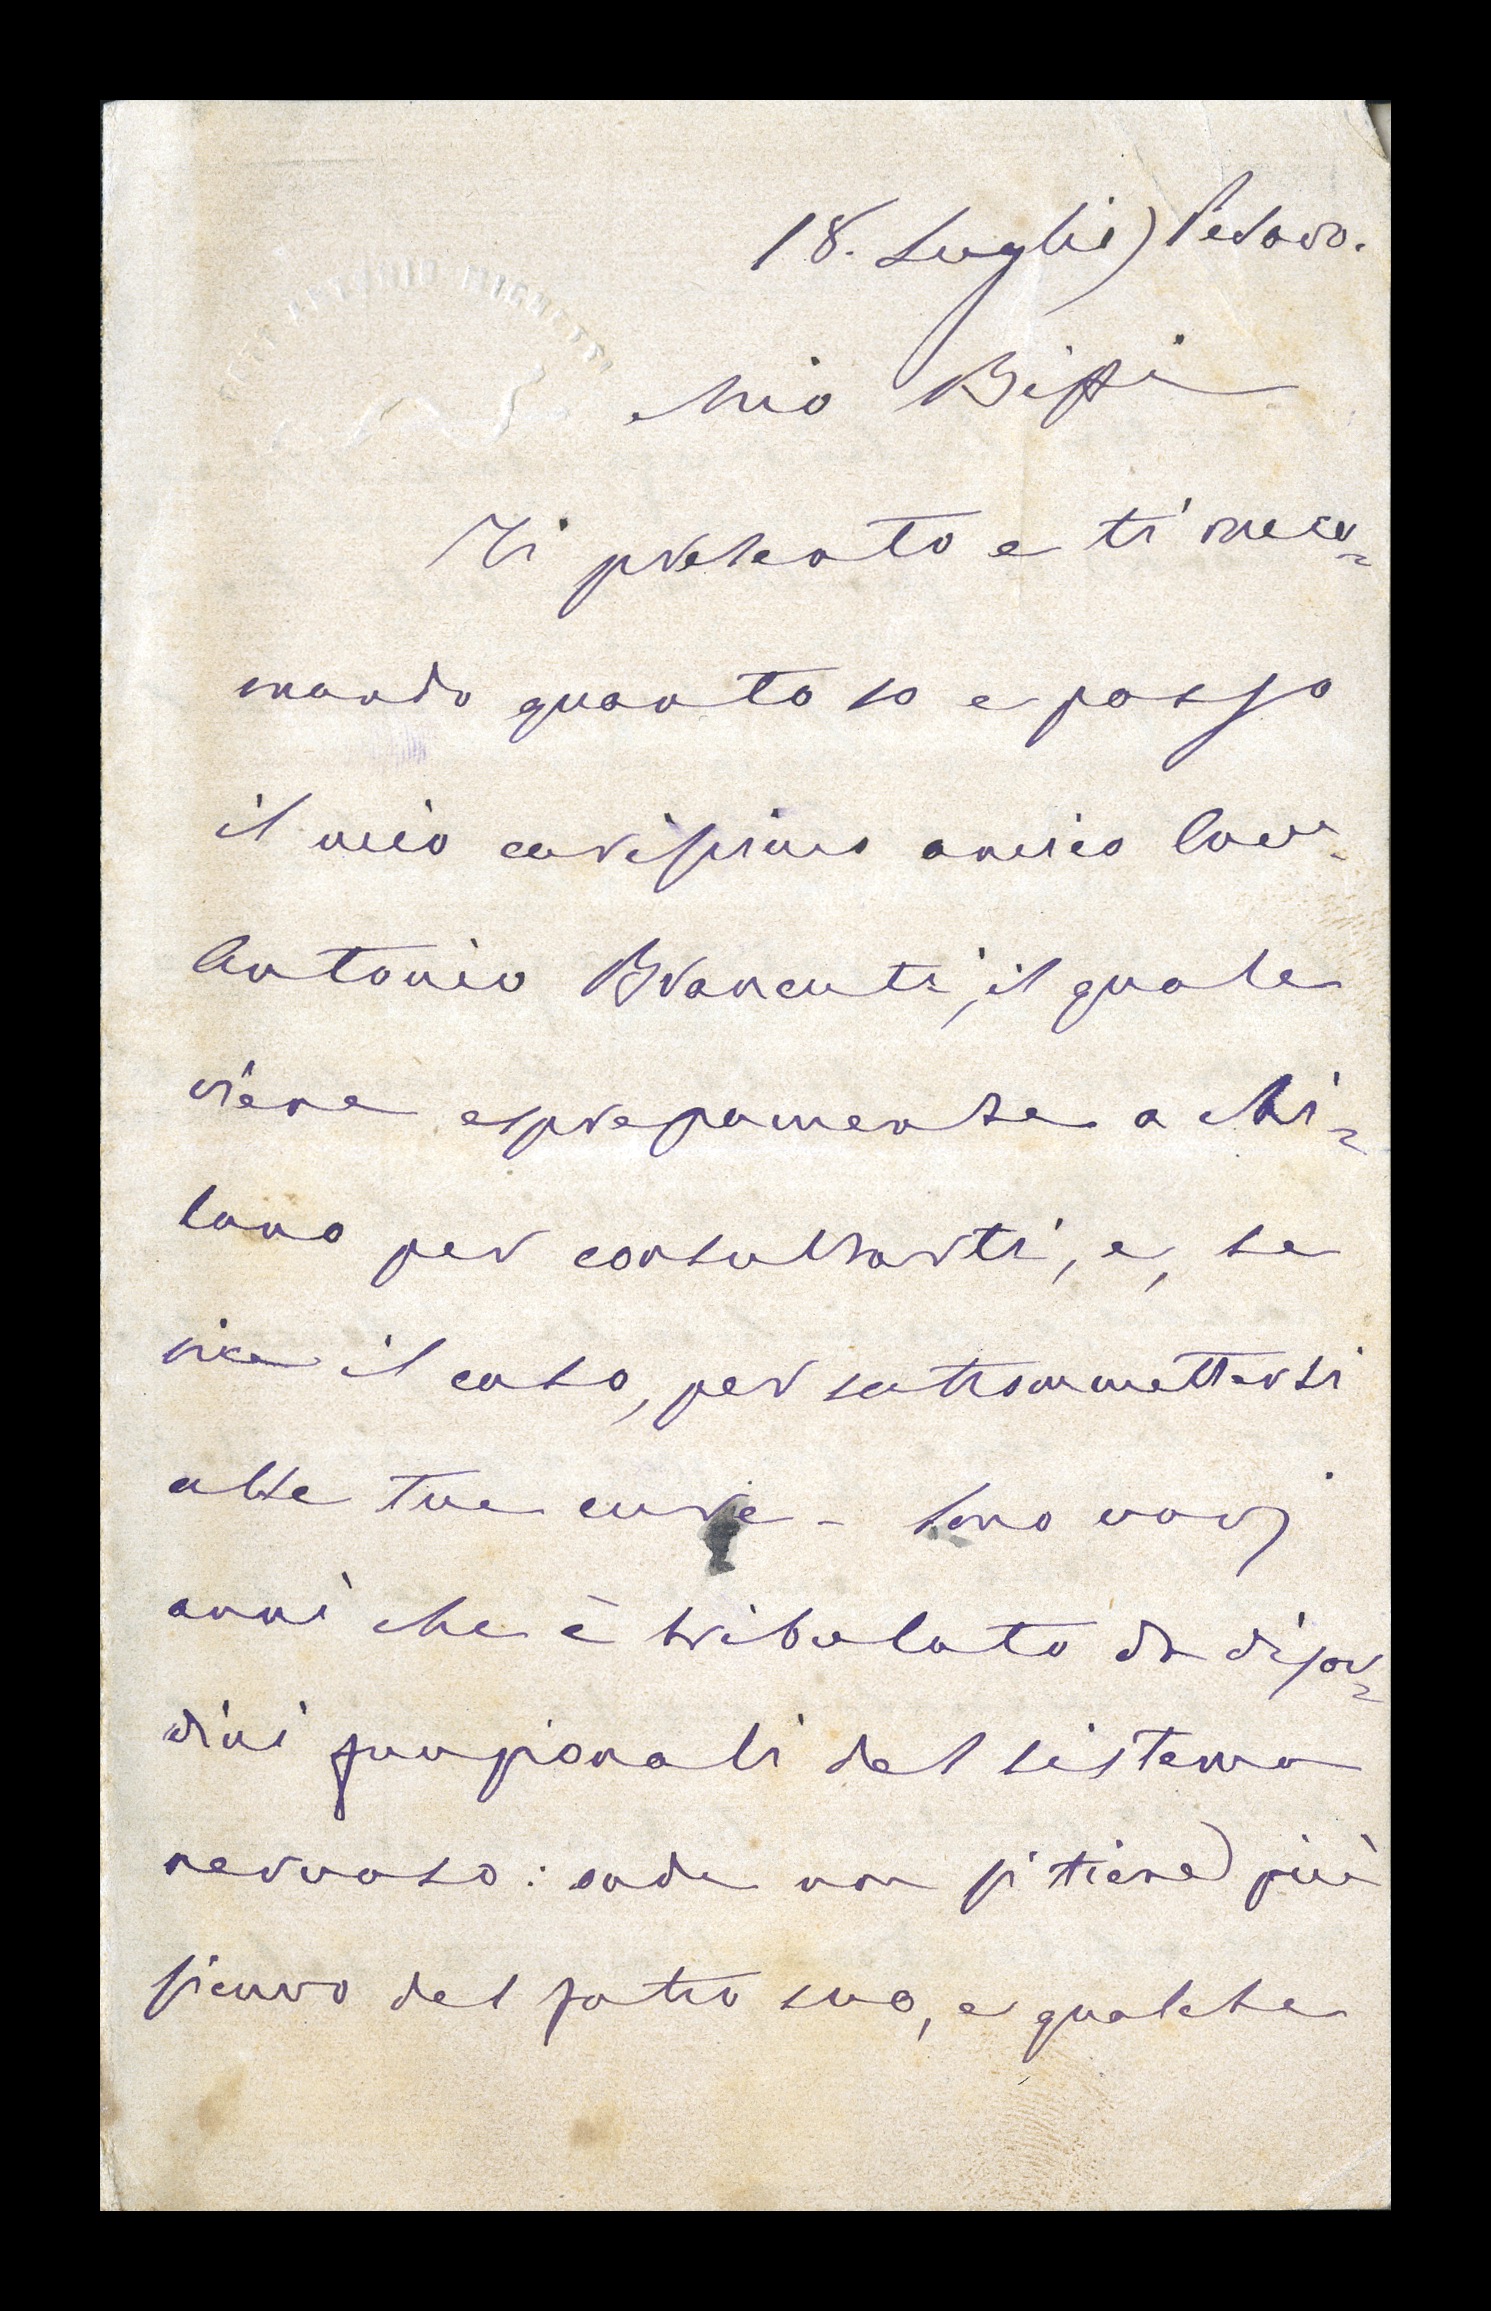 18. Luglio) Pesaro.
DOTT ANTONIO MICHETTI
Mio Biffi
Ti presento e ti racco=
mando quanto so e posso
il mio carissimo amico Cav.
Antonio Brancuti, il quale
viene espressamente a Mi=
lano per consultarti, e, se
sia il caso, per sottommettersi
alle tue cure - Sono varj
anni che è tribolato da disor=
dini funzionali del sistema
nervoso: onde non si tiene) più
sicuro del fatto suo, e qualche